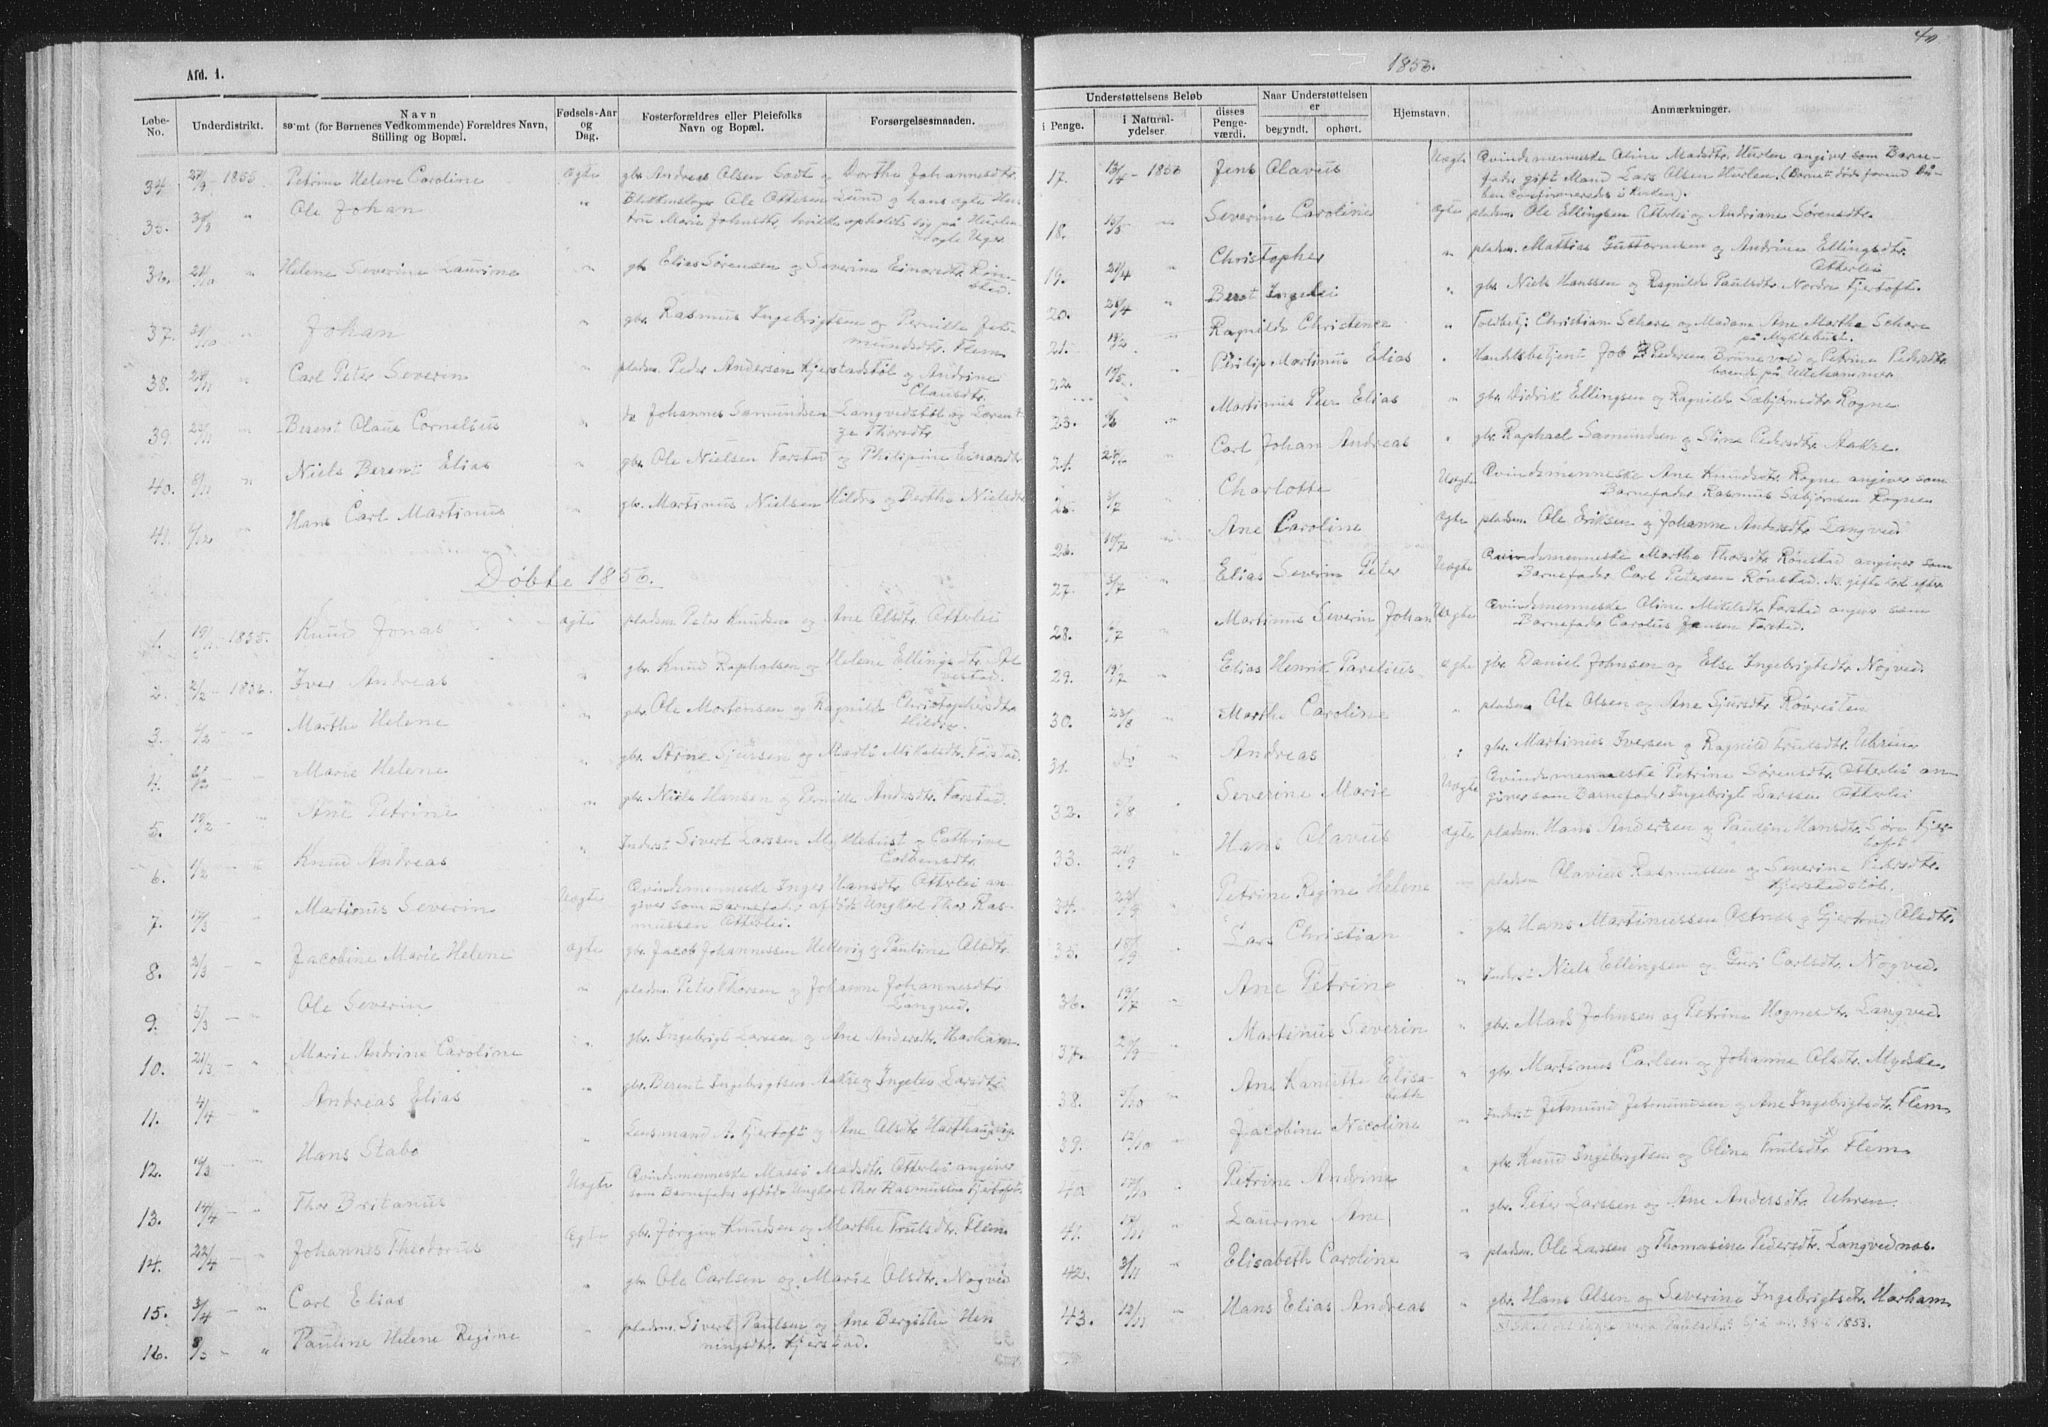 Afd. 1.
Løbe-No.
Underdistrikt.
Navn
samt (for Børnenes Vedkommende) Forældres Navn,
Stilling og Bopæl.
Fødsels-Aar
og
Dag.
Fosterforældres eller Pleiefolks
Navn og Bopæl.
Forsørgelsesmaaden.
34. 1855 Petrine Helene Caroline Ægte gbr. Andreas Olsen Sadt og Dorthe Johannesdtr.
35. " Ole Johan " Ole Ottesen Lund og hans ægte Hustru
Marie Johnsdtr, hvilke opholdt sig på
nogle Uger.
36. 21/10 " Helene Severine Laurine " gbr. Elias Sørensen og Severine Einarsdtr. Røn-
stad.
37. 21/10 " Johan " gbr. Rasmus Ingebrigtsen og Pernille Jet-
mundsdtr. Flem
38. " Carl Peter Severin " pladsm. Peder Andersen Kjerstadstøl og Andrine
Clausdtr.
39. " Berent Olaus Cornelius " do Johannes Samundsen Langvedstøl og Lorent-
ze Thoresdtr.
40. 8/11 " Niels Berent Elias " gbr. Ole Nielsen Farstad og Philipine Einarsdtr
41. 6/12 " Hans Carl Martinus " gbr. Martinus Nielsen Hildre og Berthe Nielsdtr
Døbte 1856.
1. 19/11 - 1855. Knud Jonas Ægte pladsm. Peter Knudsen og Ane Olsdtr. Otterlei
2. 2/2 - 1856. Iver Andreas " gbr. Knud Raphalsen og Helene Ellingsdtr.
3. 4/2 - " Marthe Helene " gbr. Ole Mortensen og Ragnilde Christophersdtr.
Hildre
4. - " Marie Helene " gbr. Arne Sjursen og Marte Mikalsdtr. Farstad.
5. 19/2 - " Ane Petrine " gbr. Niels Hansen og Pernille Andersdtr. Farstad.
6. 1/2 - " Knud Andreas " Inderst Sivert Larssen Myklebust og Cathrine
Colbensdtr.
7. 17/3 " Martinus Severin Uægte Qvindemenneske Inger Hansdtr. Otterlei an-
giver som Barnefader afdøde Ungkarl Thor Ras-
mussen Otterlei.
8. 2/3 - " Jacobine Marie Helene Ægte gbr. Jacob Johannessen Hellevig og Pauline Olsdtr.
9. 5/3 - " Ole Severin " pladsm. Peter Thorsen og Johanne Johannesdtr.
Langved.
10. 21/3 - " Marie Andrine Caroline " gbr. Ingebrigt Larssen og Ane Andersdtr. Harham.
11. 4/4 - " Andreas Elias " gbr. Berent Ingebrigtsen Aakre og Ingelev Larsdtr
12. 16/3 - " Hans Stabo " Lensmand A. Fjertoft og Ane Olsdtr.
13. 14/4 - " Thor Britanius Uægte Qvindemenneske Massi Madsdtr. Otterlei angiver
som Barnefader afdøde Ungkarl Thor Rasmussen Fjertoft.
14. 22/4 - " Johannes Theodorus Ægte gbr. Jørgen Knudsen og Marthe Trulsdtr. Flem
15. 3/4 - " Carl Elias " gbr. Ole Carlsen og Marie Olsdtr. Nogved
16. 8/5 - " Pauline Helene Regine " pladsm. Sivert Paulsen og Ane Bergithe Hen
ningsdtr. Kjerstad.
40
1856.
Understøttelsens Beløb
i Penge.
i Natural-
ydelser
disses
Penge-
værdi.
Naar Understøttelsen
er
begyndt.
ophørt.
Hjemstavn.
Anmærkninger.
17. 13/4 - 1856 Jens Olavus Uægte Qvindemenneske Oline Madsdtr. Hurlen angiver som Barne-
fader gift Mand Lars Olsen Hurlen. (Barnet døde forend Då-
ben confirmeredes i Kirken).
18. 13/5 - " Severine Caroline Ægte pladsm. Ole Ellingsen Otterlei og Andriane Sørensdtr.
19. 21/4 " Christopher " pladsm. Mattias Guttormsen og Andrine Ellingsdtr.
Otterlei
20. 26/4 " Berat Ingelei " gbr. Niels Hanssen og Ragnilde Paulsdtr. Nordre Fjertoft.
21. 19/2 " Ragnilde Christence " Toldbetj. Christian Schare og Madam Ane Marthe Schare
på Myklebust.
22. 19/5 Philip Martinus Elias " Handelsbetjent Job Pedersen Brunevold og Petrine Pedersdtr
boende på Ullehammer
23. Martinus Peer Elias " gbr. Didrik Ellingsen og Ragnilde Sæbjørnsdtr. Rogne
24. Carl Johan Andreas " gbr. Raphael Samundsen og Stina Pedersdtr. Aakre.
25. 3/7 " Charlotte Uægte Qvindemenneske Ane Knudsdtr. Rogne angiver som
Barnefader Rasmus Sæbjørnsen Rognen
26. 10/7 " Ane Caroline Ægte pladsm. Ole Eriksen og Johanne Andersdtr. Langved
27. 5/7 " Elias Severin Peter Uægte Qvindemenneske Marthe Thorsdtr. Rønstad angiver som
Barnefader Carl Petersen Rønstad. N. gifte kort efter
28. 6/7 " Martinus Severin Johan Uægte Qvindemenneske Oline Mikelsdtr. Farstad angiver som
Barnefader Carolus Jensen Farstad.
29. 19/7 " Elias Henrik Parelius Ægte gbr. Daniel Johnsen og Else Ingebrigtsdtr. Nogved.
30. 23/8 " Marthe Caroline " pladsm. Ole Olsen og Ane Sjursdtr. Rørvesten
31. do " Andreas " gbr. Martinus Iversen og Ragnild Trulsdtr. Uhrin
32. 9/8 " Severine Marie Uægte Qvindemenneske Petrine Sørensdtr. Otterlei an-
giver som Barnefader Ingebrigt Larssen Otterlei
33. 21/9 " Hans Olavus Ægte pladsm. Hans Andersen og Pauline Hansdtr. Søre Fjer-
toft
34. 22/9 " Petrine Regine Helene " pladsm Olavius Rasmussen og Severine Pedersdtr.
Kjerstadstøl.
35. 18/9 " Lars Christian " gbr. Hans Martinussen Ostnes og Gjertrud Olsdtr.
36. 19/7 " Ane Petrine " Inderst Niels Ellingsen og Guri Carlsdtr. Nogved.
37. 2/9 " Martinus Severin " gbr. Mads Johnsen og Petrine Hognesdtr. Langved.
38. 5/10 " Ane Hanette Elisa-
beth " gbr. Martinus Carlsen og Johanne Olsdtr. Myckle.
39. 12/10 " Jacobine Nicoline " Inderst Jetmund Jetmundsen og Ane Ingebrigtsdtr. Flem
40. " Petrine Andrine " gbr. Knud Ingebrigtsen og Oline Trulsdtr. Flem
41. 14/11 " Laurine Ane " gbr. Peter Larssen og Ane Andersdtr. Uhren.
42. 3/11 " Elisabeth Caroline " pladsm. Ole Larsen og Thomasine Pedersdtr. Langvednæs.
43. 12/11 " Hans Elias Andreas " gbr. Hans Olsen og Severine Ingebrigtsdtr. Harham
1853.